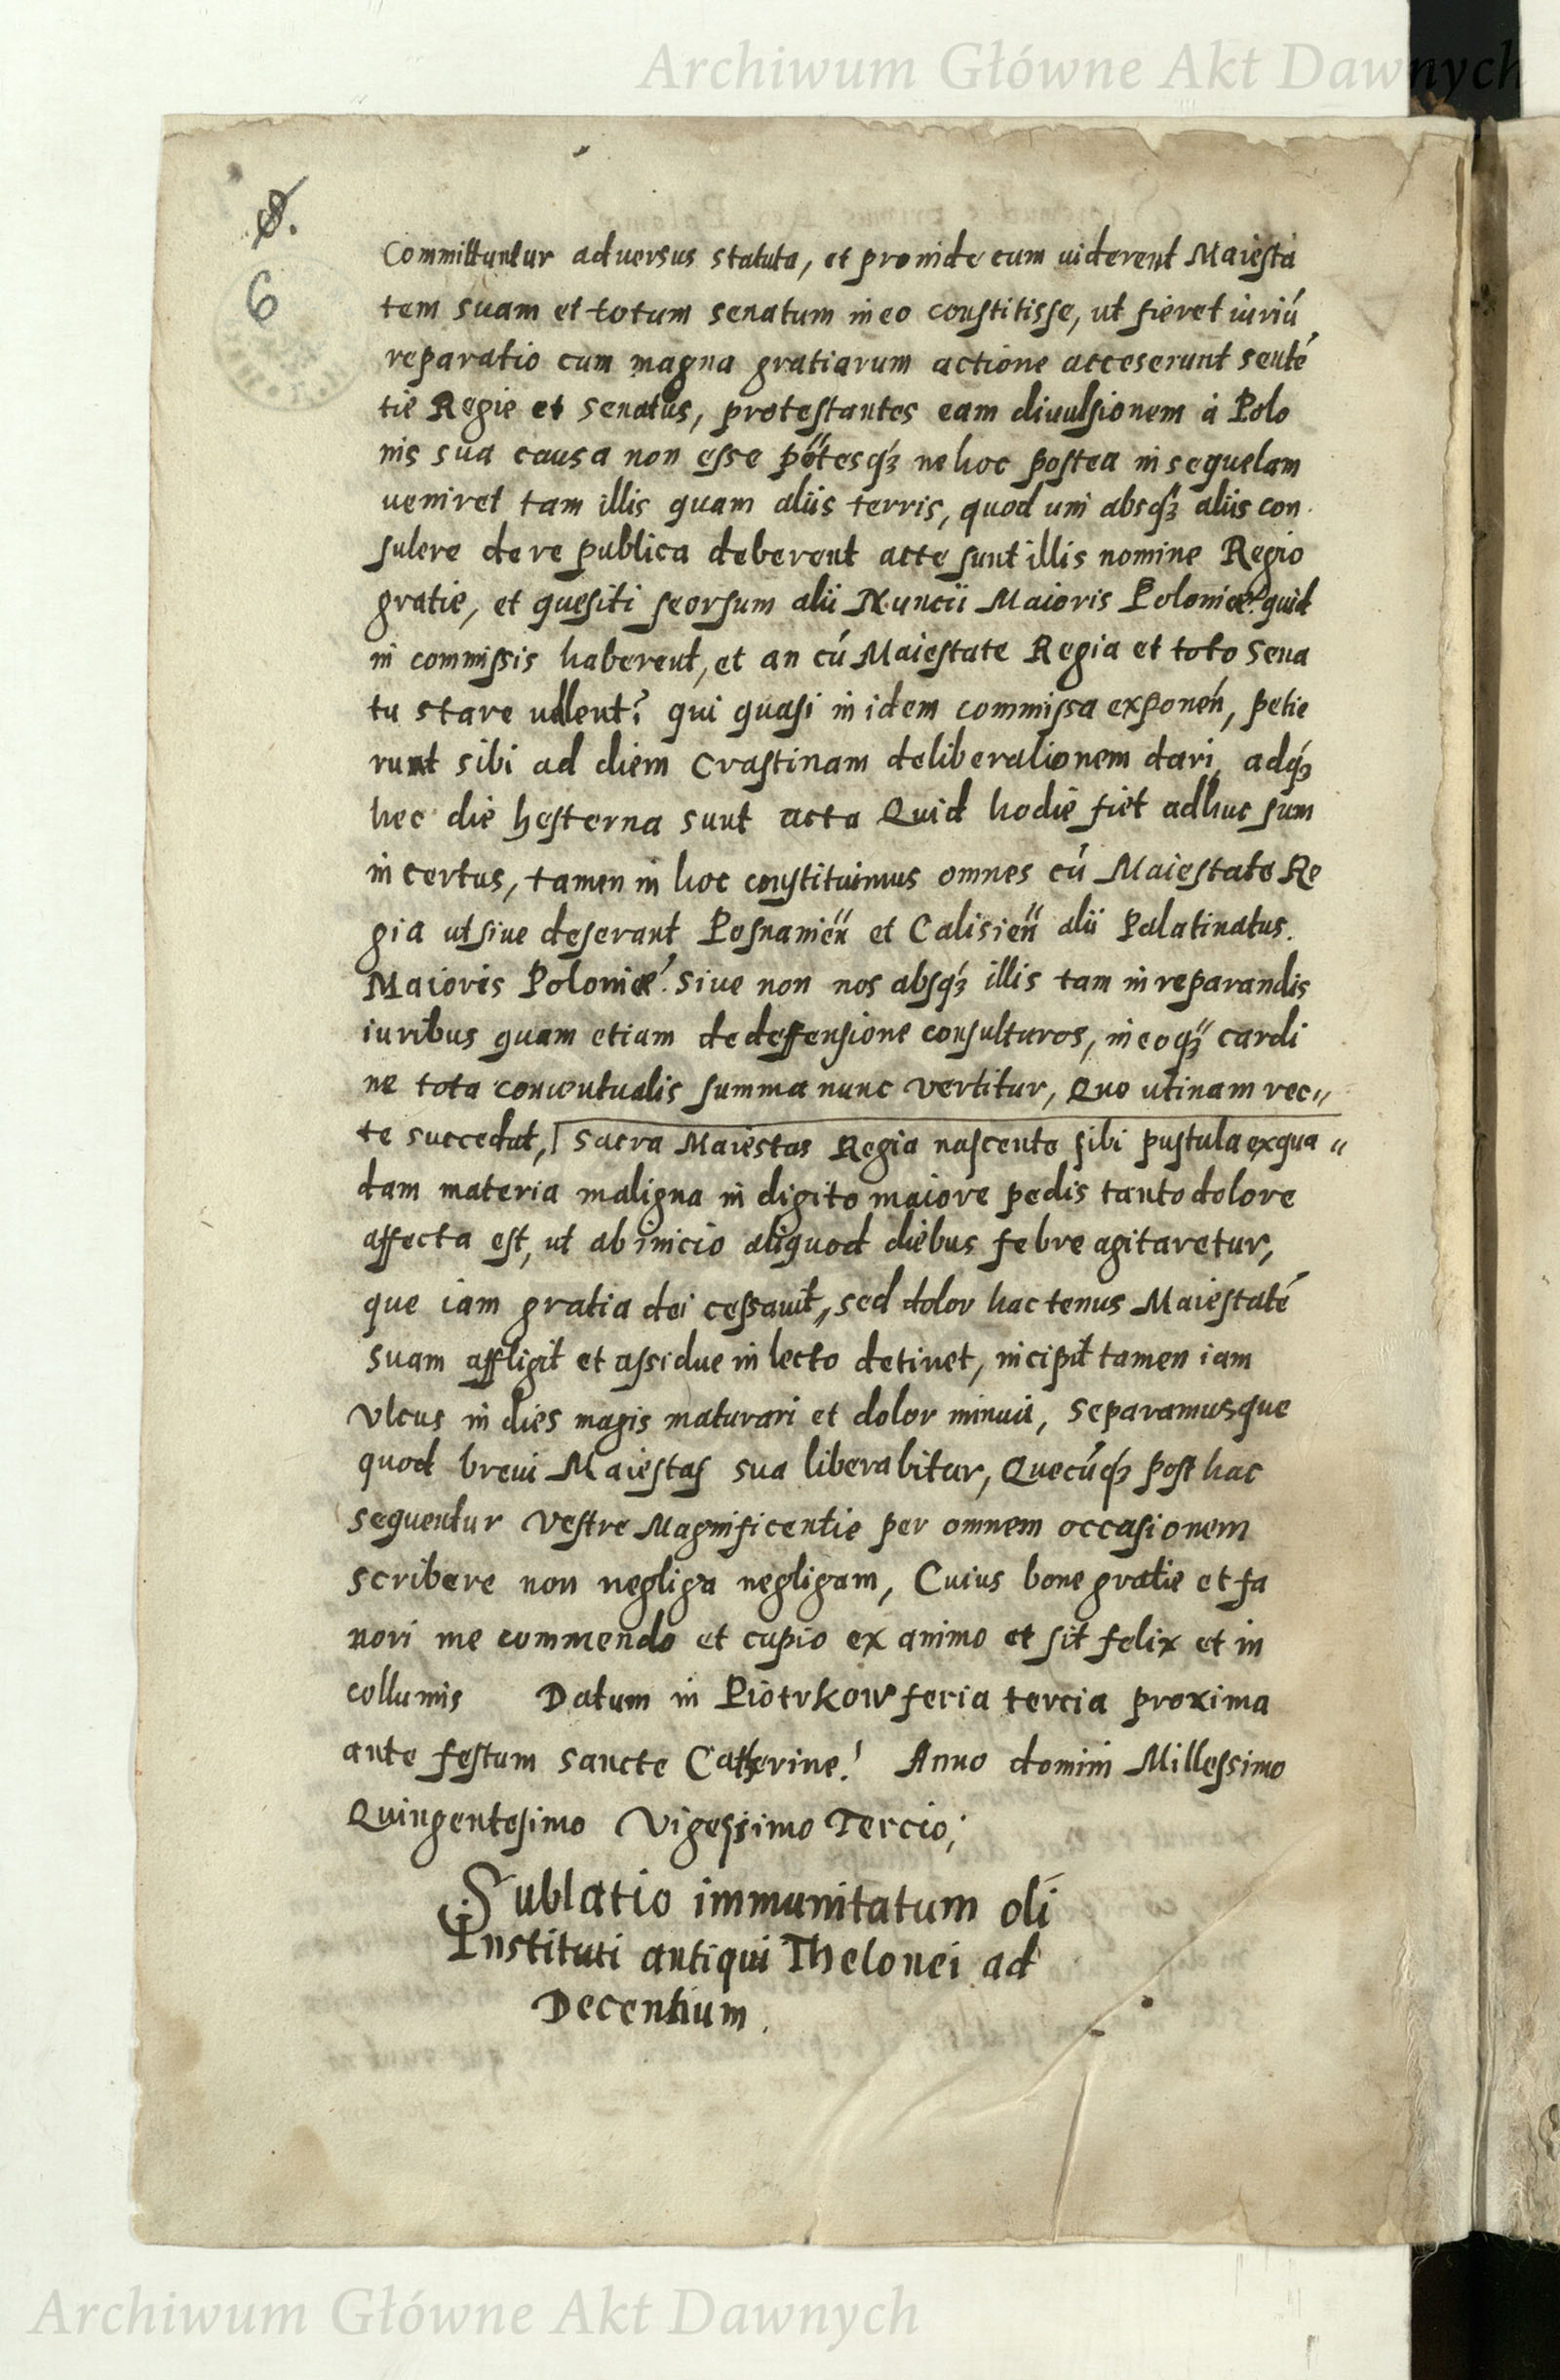 Archiwum Główne Akt Dawnych
8.
6
Committuntur adversus statuta, et proinde cum viderent Maiesta
tem suam et totum senatum in eo constitisse, ut fieret iuriú
reparatio cum magna gratiarum actione acceserunt senté
tie Regie et senatus, protestantes eam divulsionem à Polo
nis sua causa non esse potesq́ꝫ ne hoc postea in sequelam
veniret tam illis quam aliis terris, quod uni absq́ꝫ aliis con
sulere de re publica deberent acte sunt illis nomine Regio
gratie, et quesiti seorsum alii Nuncii Maioris Poloniæ quid
in commissis haberent, et an cú Maiestate Regia et toto sena
tu stare vellent? qui quasi in idem commissa exponeń, petie
runt sibi ad diem crastinam deliberationem dari, adq́ꝫ
hec die hesterna sunt acta Quid hodie fiet adhuc sum
incertus, tamen in hoc constituimus omnes cú Maiestate Re
gia ut sive deserant Posnanień et Calisień alii Palatinatus.
Maioris Poloniæ. Sive non nos absq́ꝫ illis tam in reparandis
iuribus quam etiam de deffensione consulturos, in eoq́ꝫ cardi
ne tota conventualis summa nunc vertitur, Quo utinam rec„
te succedat, sacra Maiestas Regia nascente sibi pustula ex qua„
dam materia maligna in digito maiore pedis tanto dolore
affecta est, ut ab inicio aliquod diebus febre agitaretur,
que iam gratia dei cessavit, sed dolor hactenus Maiestaté
suam affligit et assidue in lecto detinet, incipit tamen iam
Vlcus in dies magis maturari et dolor minui, Separamusque
quod brevi Maiestas sua liberabitur, Quecúq́ꝫ post hac
sequentur Vestre Magnificentie per omnem occasionem
scribere non negliga negligam, Cuius bone gratie et fa
vori me commendo et cupio ex animo et sit felix et in
collumis Datum in Piotrkow feria tercia proxima
ante festum sancte Catherine! Anno domini Millessimo
Quingentesimo Vigessimo Tercio;
Sublatio immunitatum olí
Instituti antiqui Thelonei ad
Decentium.
Archiwum Główne Akt Dawnych